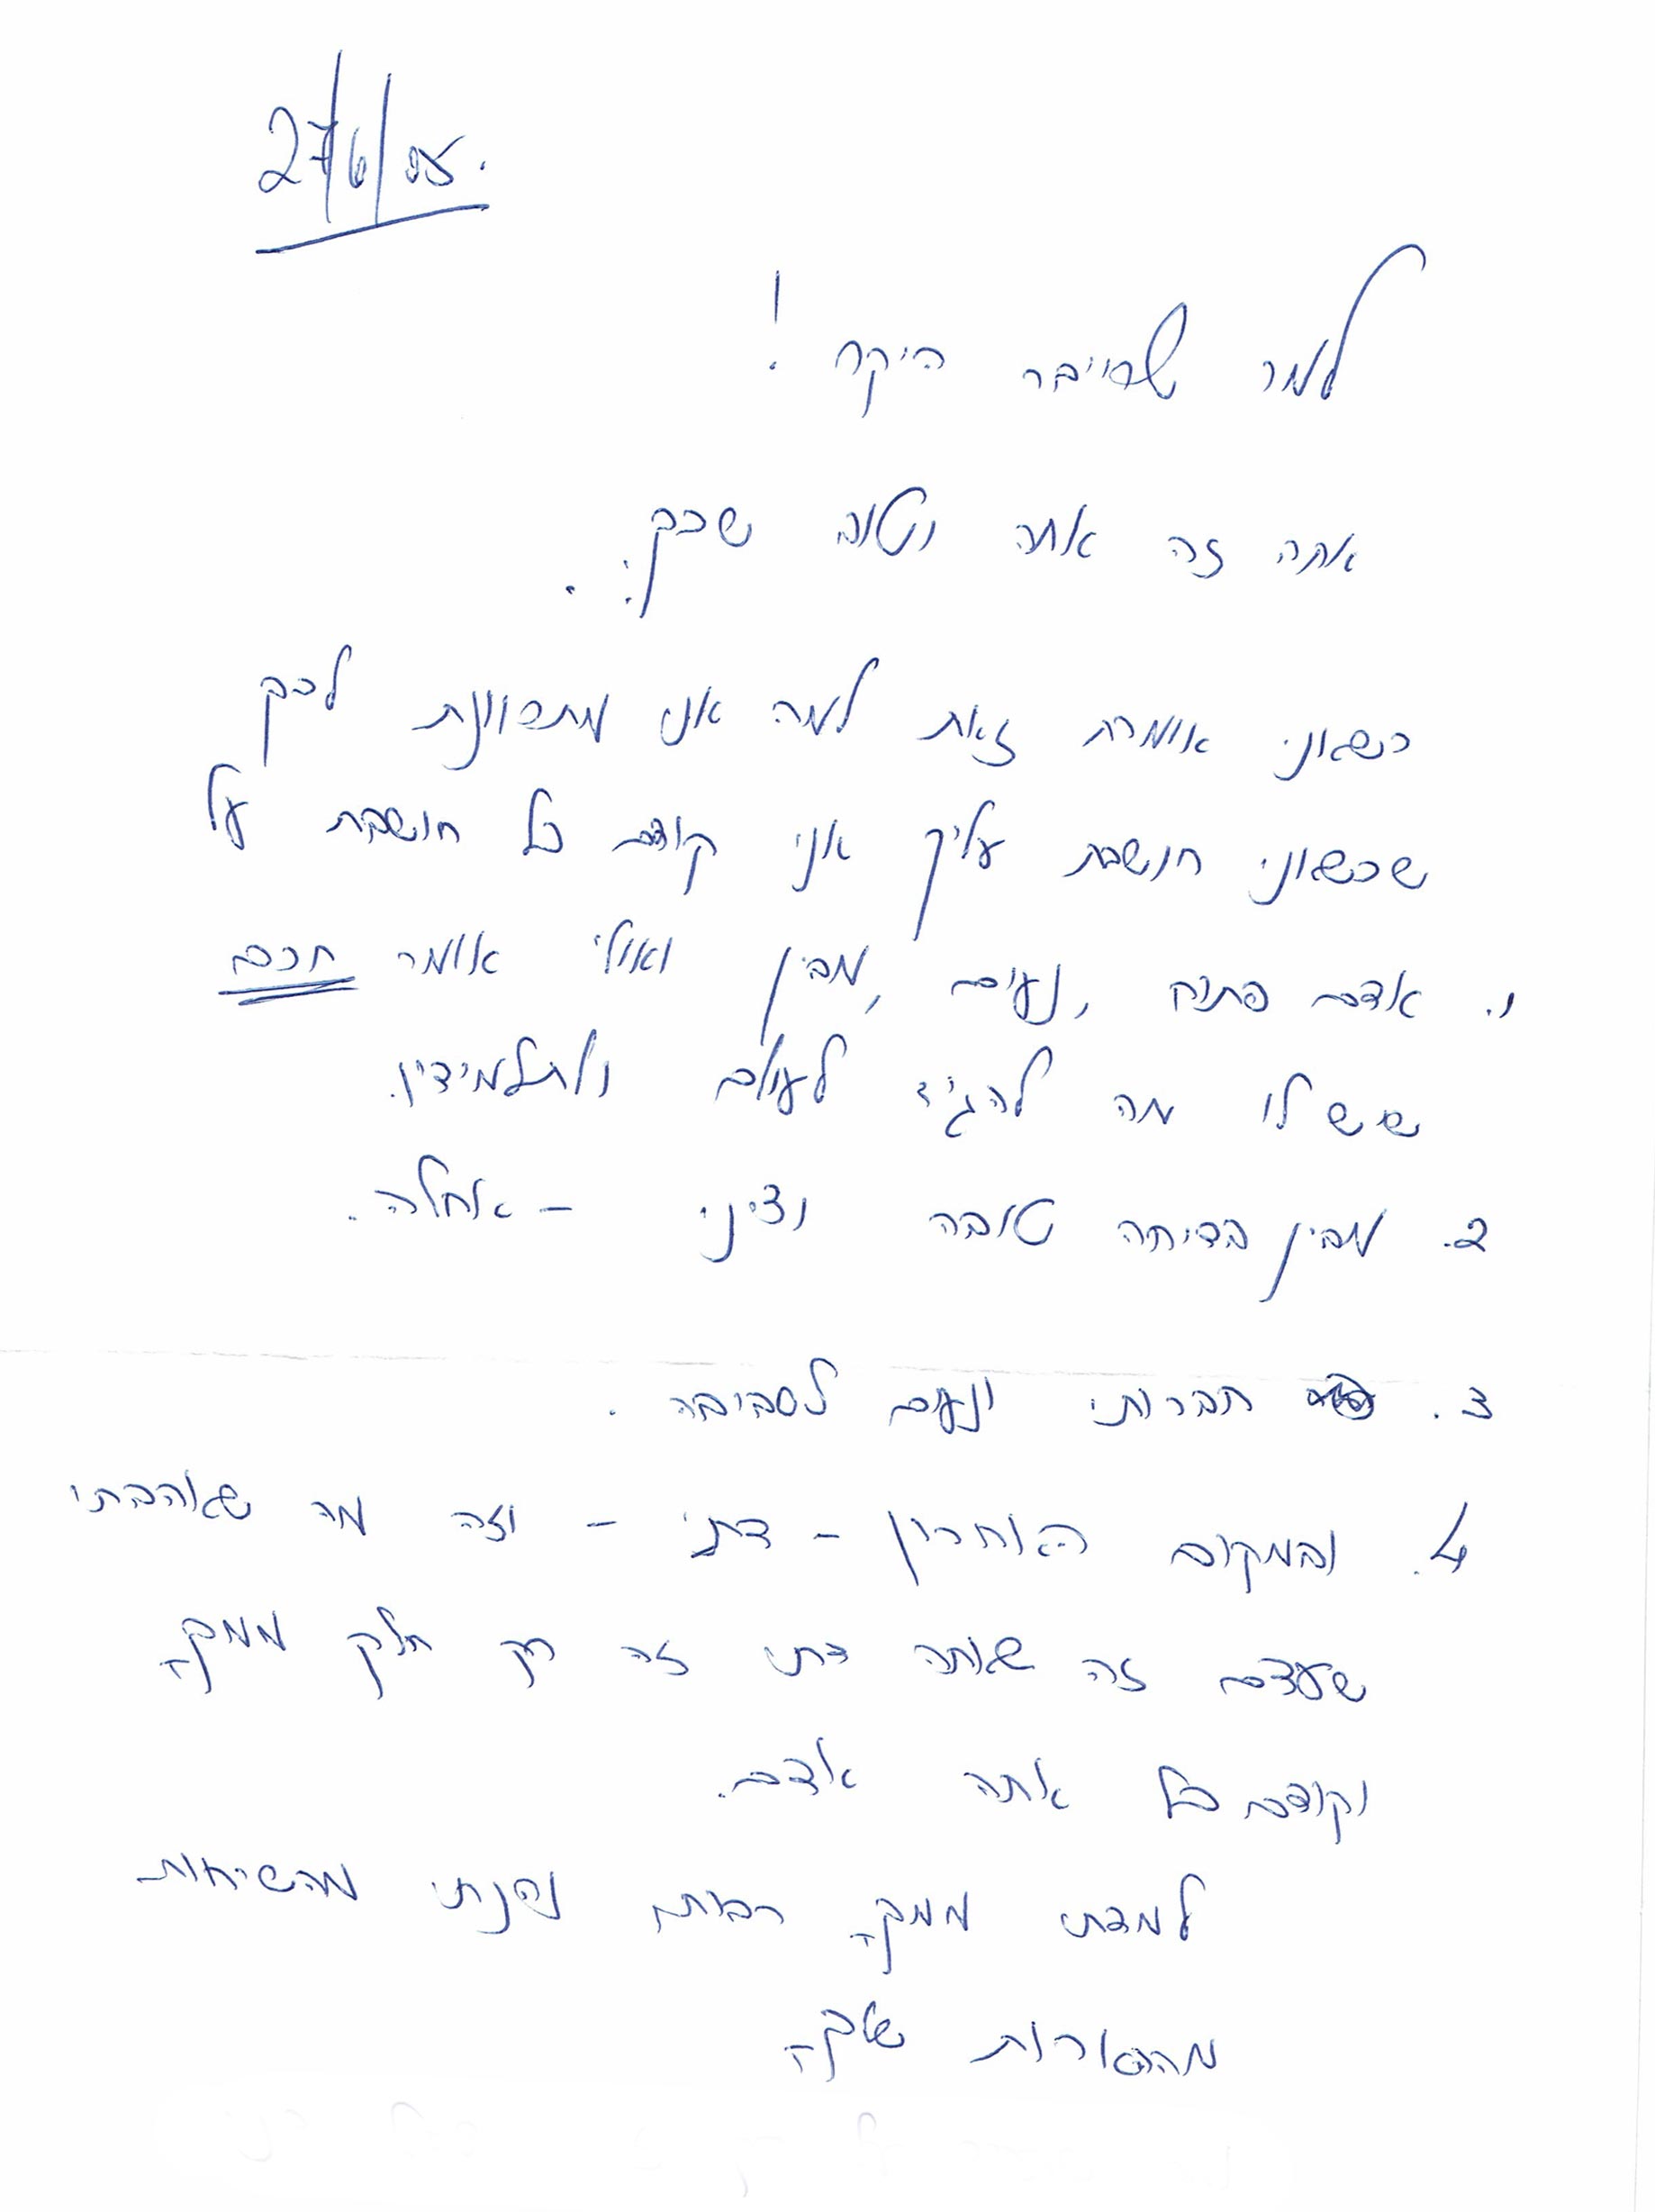 27/6/05.
למר שרייבר היקר!
אתה זה אתה וטוב שכך:.
כשאני אומרת זאת למה אני מתכוונת לכך
שכשאני חושבת עליך אני קודם כל חושבת על
1. אדם פתוח, נעים, מבין ואולי אומר חכם
שיש לו מה להגיד לעולם ולתלמידיו.
2. מבין בדיחה טובה וציני – אחלה.
3. חברותי ונעים לסביבה.
4. ובמקום האחרון – דתי – וזה מה שאהבתי
שעצם זה שאתה דתי זה רק חלק ממך
וקודם כל אתה אדם.
למדתי ממך רבות, נהנתי מהשיחות
מההארות שלך